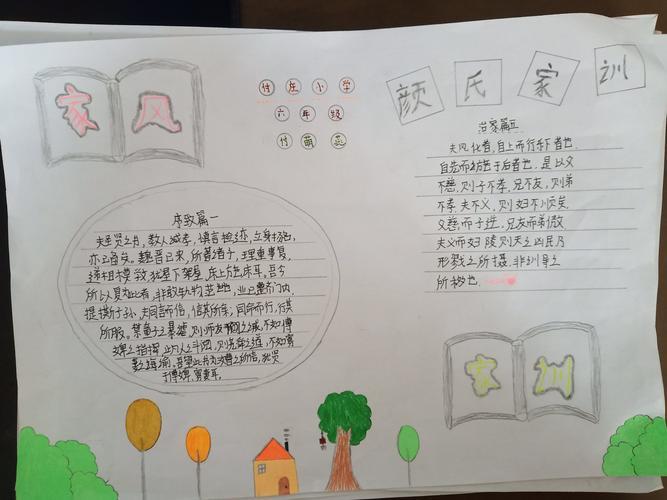 家风
付庄小学
六年级
付萌蕊
颜氏家训
治家篇五
夫风化者,自上而行于下者也,
自先而施于后者也。是以父
不慈,则子不孝,兄不友,则弟
不孝,夫不义,则妇不顺矣
父慈而子逆,兄友而弟傲
夫义而妇陵则天之凶民乃
刑戮之所摄,非训导之
所移也.
序致篇一
夫圣贤之书,教人诚孝,慎言检迹,立身扬名,
亦已备矣。魏晋已来,所著诸子,理重事复,
递相模敩,犹屋下架屋,床上施床耳。吾今
所以复为此者,非敢轨物范世也,业以整齐门内,
提撕子孙。夫同言而信,信其所亲;同命而行,行其
所服。禁童子之暴谑,则师友之诫,不如傅
婢之指挥,止凡人之斗阋,则尧舜之道,不如寡
妻之诲谕。吾望此书为汝曹之所信,犹贤
于傅婢寡妻耳。
家训